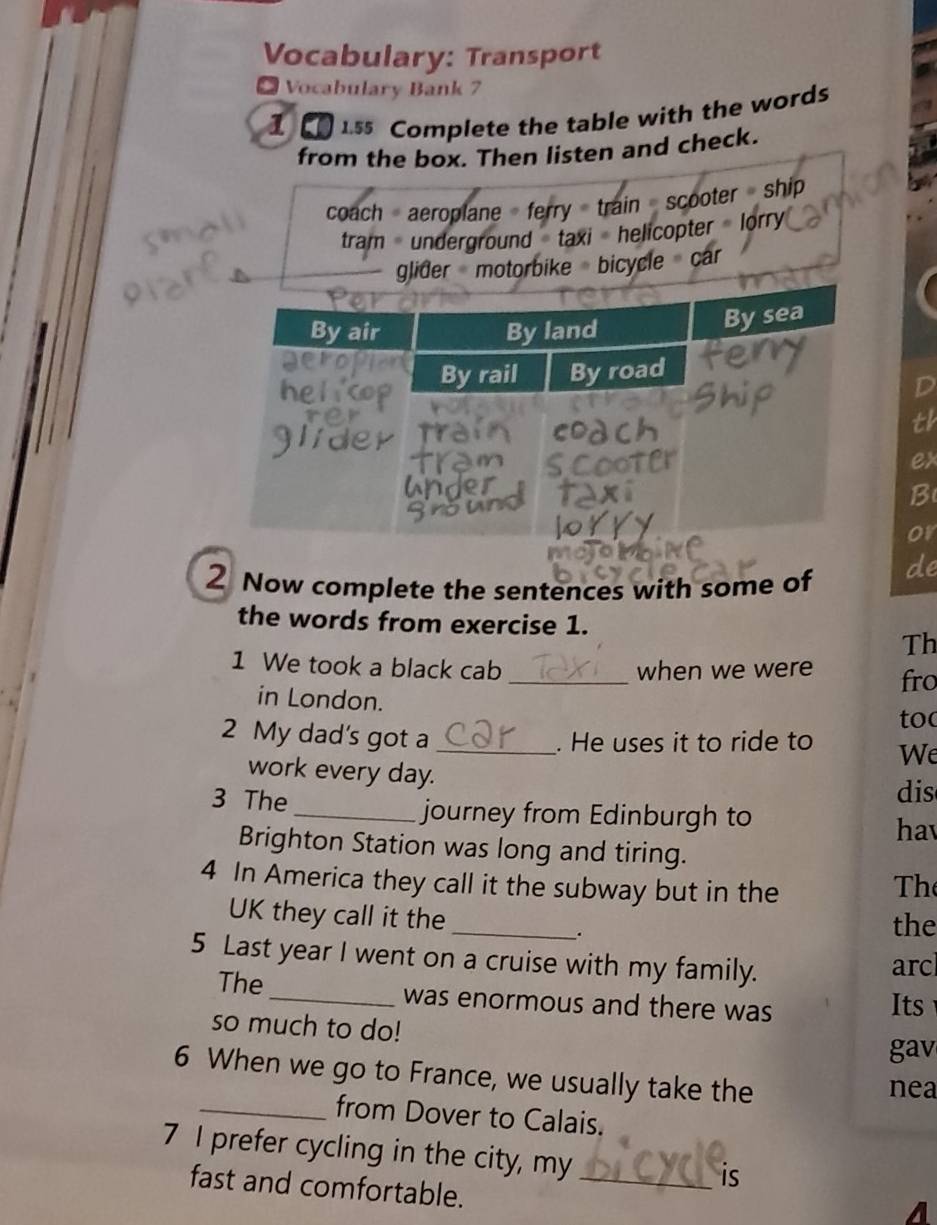 Vocabulary: Transport
Vocabulary Bank 7
1 1.55 Complete the table with the words
from the box. Then listen and check.
coach • aeroplane • ferry • train • scooter • ship
tram • underground • taxi • helicopter • lorry camion
glider • motorbike • bicycle • car
small
Per aria terra mare
By air By land By sea
By rail By road
ferry
ship
helicop
ter
glider
train
tram
under
ground
coach
scooter
taxi
lorry
bicycle car
2 Now complete the sentences with some of
the words from exercise 1.
1 We took a black cab Taxi when we were
in London.
2 My dad's got a car. He uses it to ride to
work every day.
3 The ________ journey from Edinburgh to
Brighton Station was long and tiring.
4 In America they call it the subway but in the
UK they call it the ________.
5 Last year I went on a cruise with my family.
The ________ was enormous and there was
so much to do!
6 When we go to France, we usually take the
________ from Dover to Calais.
7 I prefer cycling in the city, my bicycle is
fast and comfortable.
D
th
ex
or
de
Th
fro
too
We
dis
hav
The
the
Its
gav
nea